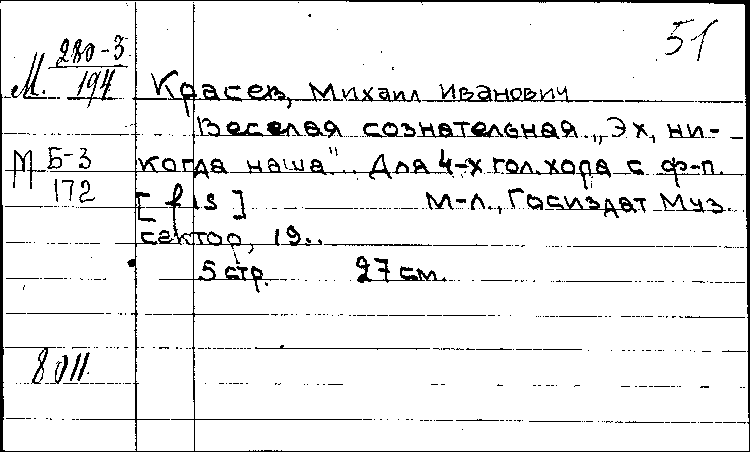 51
М. 280-3/194
Красев, Михаил Иванович
Веселая сознательная. „Эх, ни-
М Б-3/172
когда наша". Для 4-х гол. хора с ф-п.
[fis] М-Л., Госиздат Муз.
сектор, 19..
5 стр. 27 см.
8011